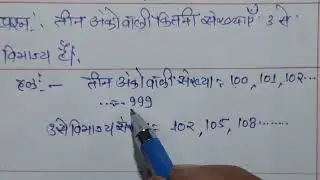 प्रश्न:- तीन अंको वाली कितनी संख्याएँ 3 से
विभाज्य हैं।
हल:- तीन अंको वाली संख्या = 100, 101, 102...
..... 999
3 से विभाज्य = 102, 105, 108.......